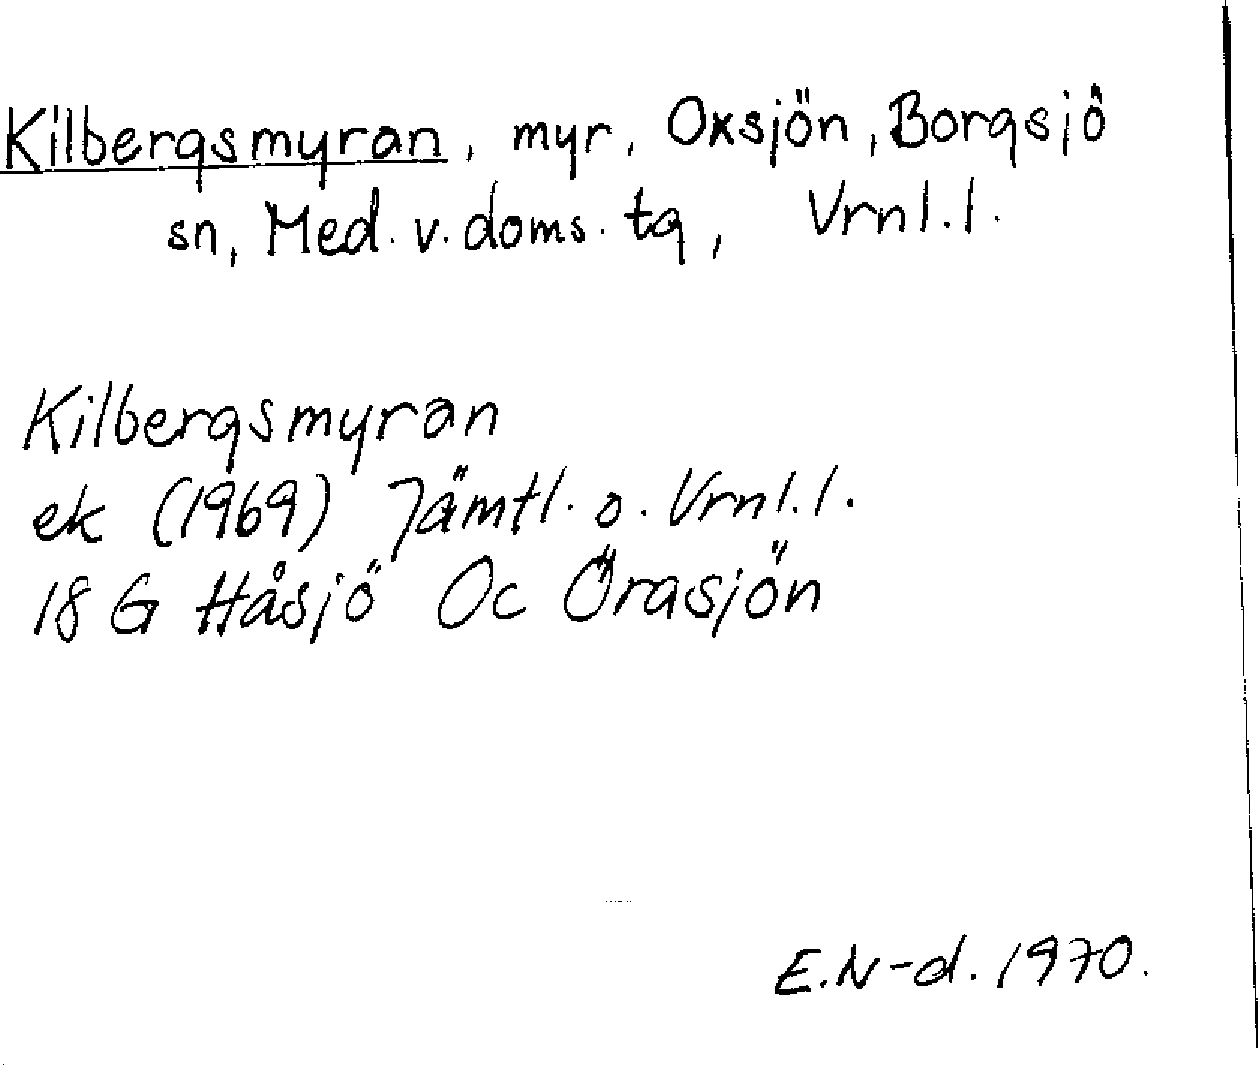 Kilbergsmyran, myr, Oxsjön, Borgsjö
sn, Med. v. doms. tg, Vrnl. l.
Kilbergsmyran
ek (1969) Jämtl. o. Vrnl. l.
18 G Håsjö Oc Örasjön
E.N-d. 1970.